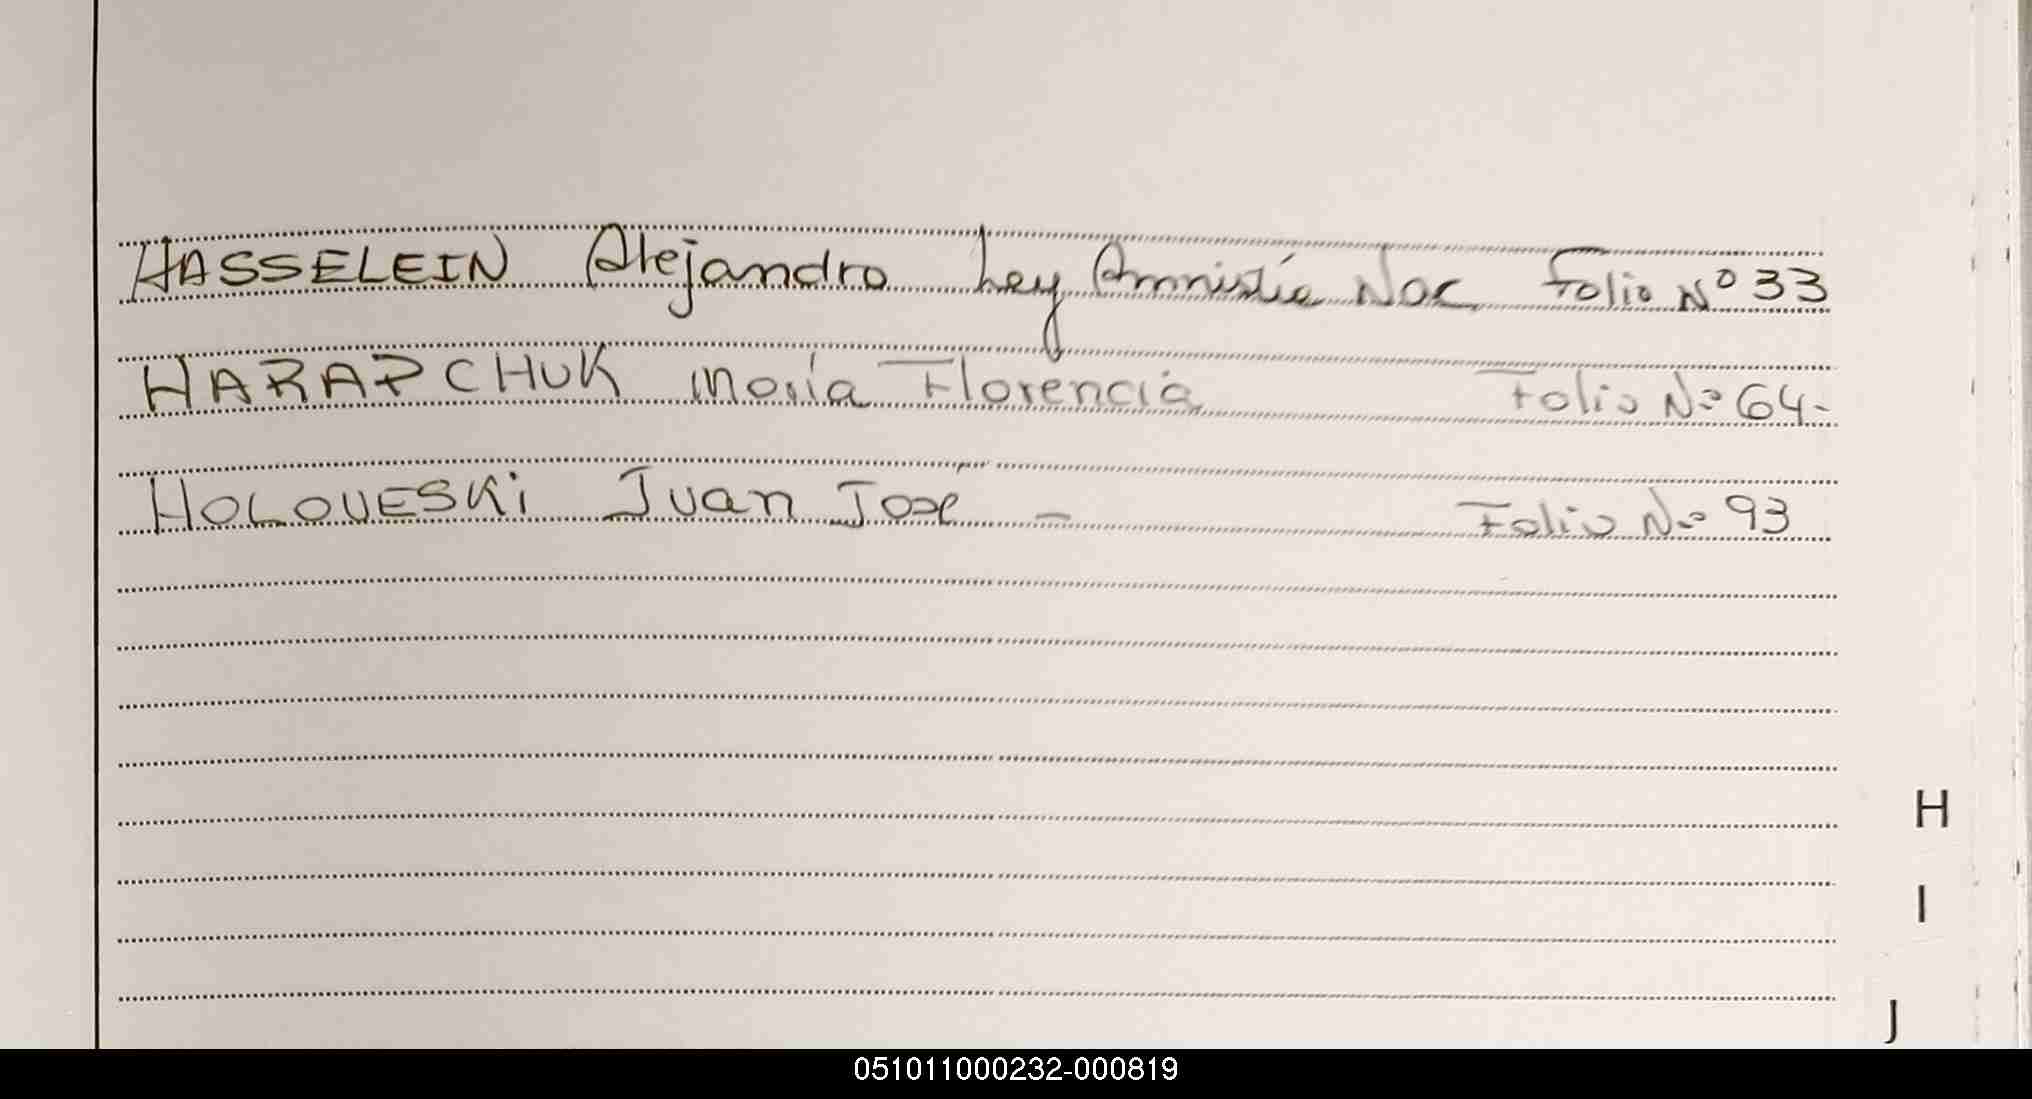 HASSELEIN Alejandro Ley Amnistía Nac Folio Nº 33
HARAPCHUK María Florencia Folio Nº 64-
HOLOVESKi Juan José - Folio Nº 93
H
I
J
051011000232-000819